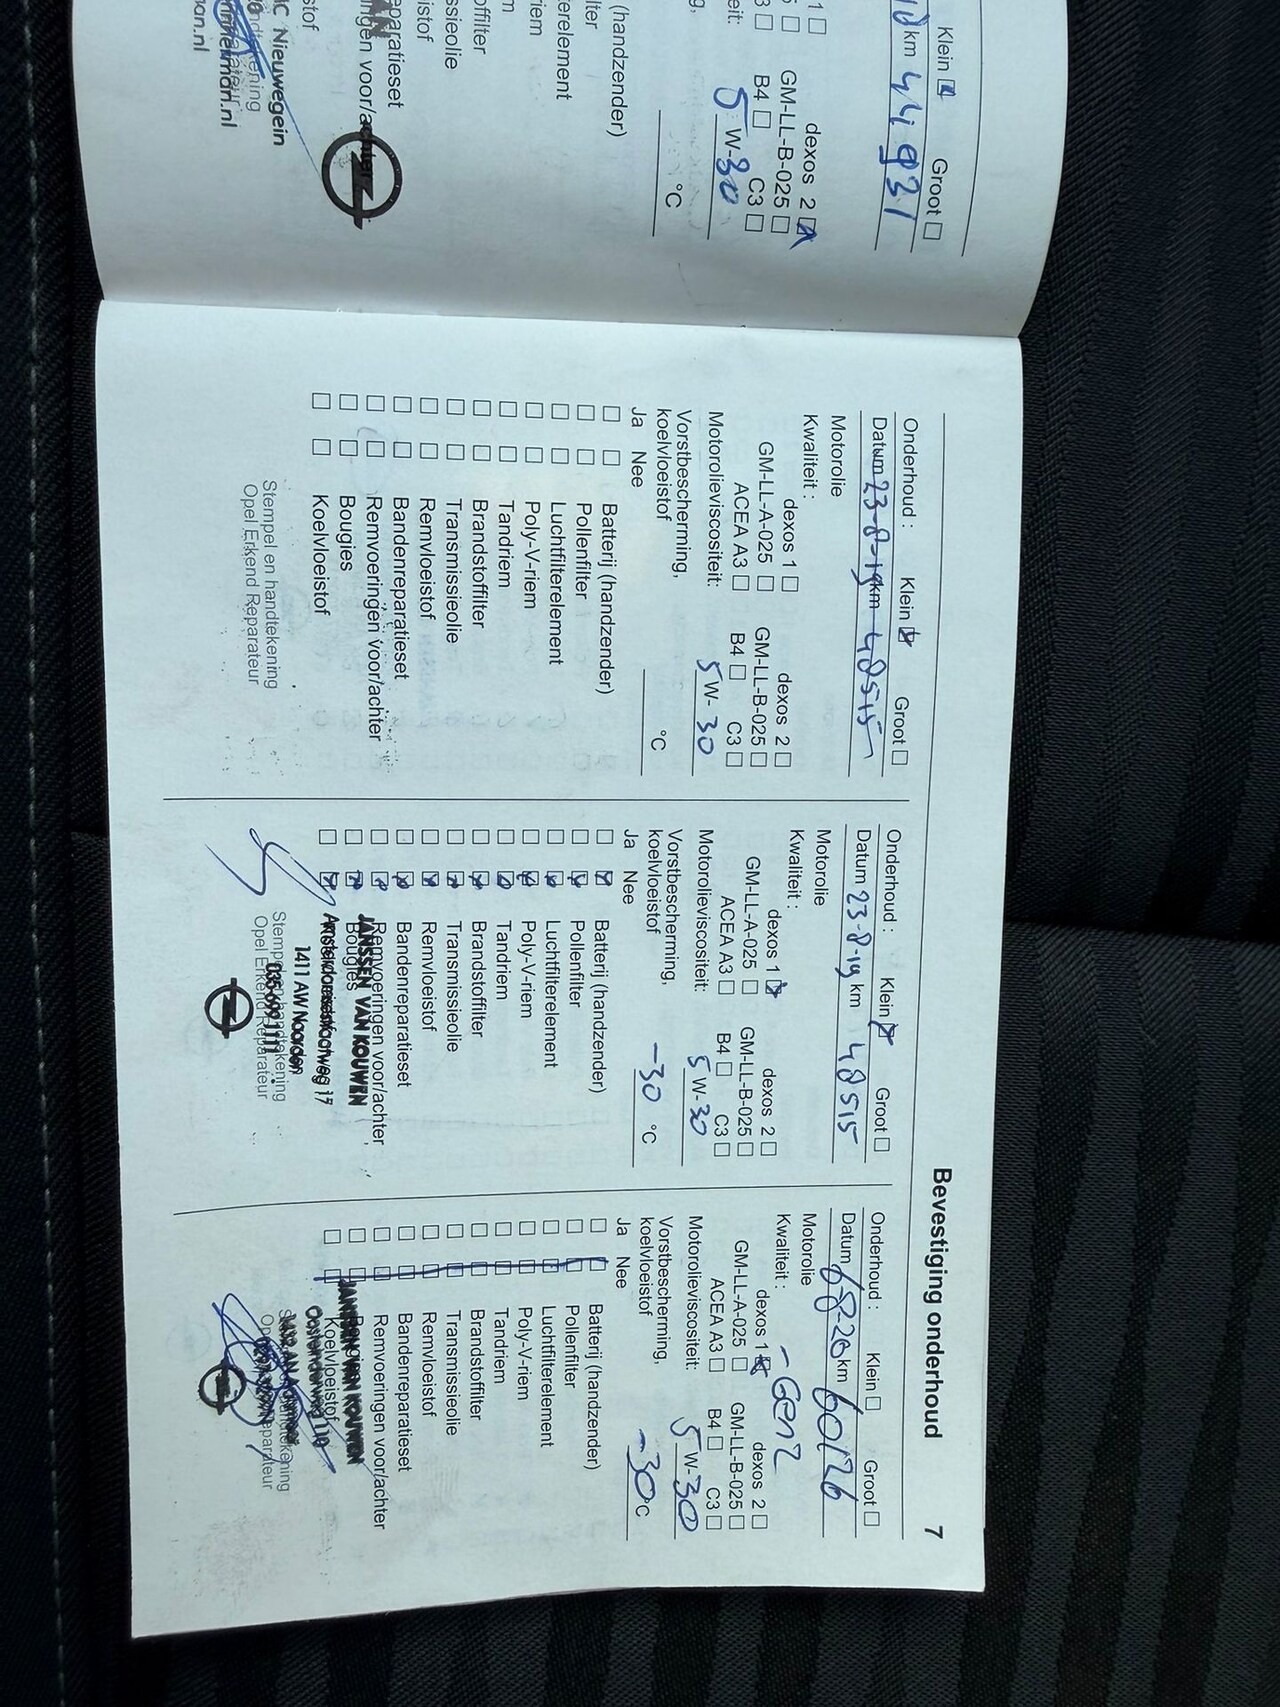 Klein Groot
km 44931
dexos 2
GM-LL-B-025
B4 C3
5 W-30
°C
(handzender)
Nieuwegein
Bevestiging onderhoud 7
Onderhoud : Klein Groot
Datum 23-8-19 km 48515
Motorolie
Kwaliteit :
dexos 1 dexos 2
GM-LL-A-025 GM-LL-B-025
ACEA A3 B4 C3
Motorolieviscositeit: 5 W- 30
Vorstbescherming,
koelvloeistof °C
Ja Nee
Batterij (handzender)
Pollenfilter
Luchtfilterelement
Poly-V-riem
Tandriem
Brandstoffilter
Transmissieolie
Remvloeistof
Bandenreparatieset
Remvoeringen voor/achter
Bougies
Koelvloeistof
Stempel en handtekening
Opel Erkend Reparateur
Onderhoud : Klein Groot
Datum 23-8-19 km 48515
Motorolie
Kwaliteit :
dexos 1 dexos 2
GM-LL-A-025 GM-LL-B-025
ACEA A3 B4 C3
Motorolieviscositeit: 5 W-30
Vorstbescherming,
koelvloeistof -30 °C
Ja Nee
Batterij (handzender)
Pollenfilter
Luchtfilterelement
Poly-V-riem
Tandriem
Brandstoffilter
Transmissieolie
Remvloeistof
Bandenreparatieset
Remvoeringen voor/achter
JANSSEN VAN KOUWEN
Bougies
1411 AW Naarden
Opel Erkend Reparateur
Onderhoud : Klein Groot
Datum 6-8-20 km 60126
Motorolie
Kwaliteit : - Gen 2
dexos 1 dexos 2
GM-LL-A-025 GM-LL-B-025
ACEA A3 B4 C3
Motorolieviscositeit: 5 W-30
Vorstbescherming,
koelvloeistof -30 °C
Ja Nee
Batterij (handzender)
Pollenfilter
Luchtfilterelement
Poly-V-riem
Tandriem
Brandstoffilter
Transmissieolie
Remvloeistof
Bandenreparatieset
Remvoeringen voor/achter
JANSSEN VAN KOUWEN
Koelvloeistof